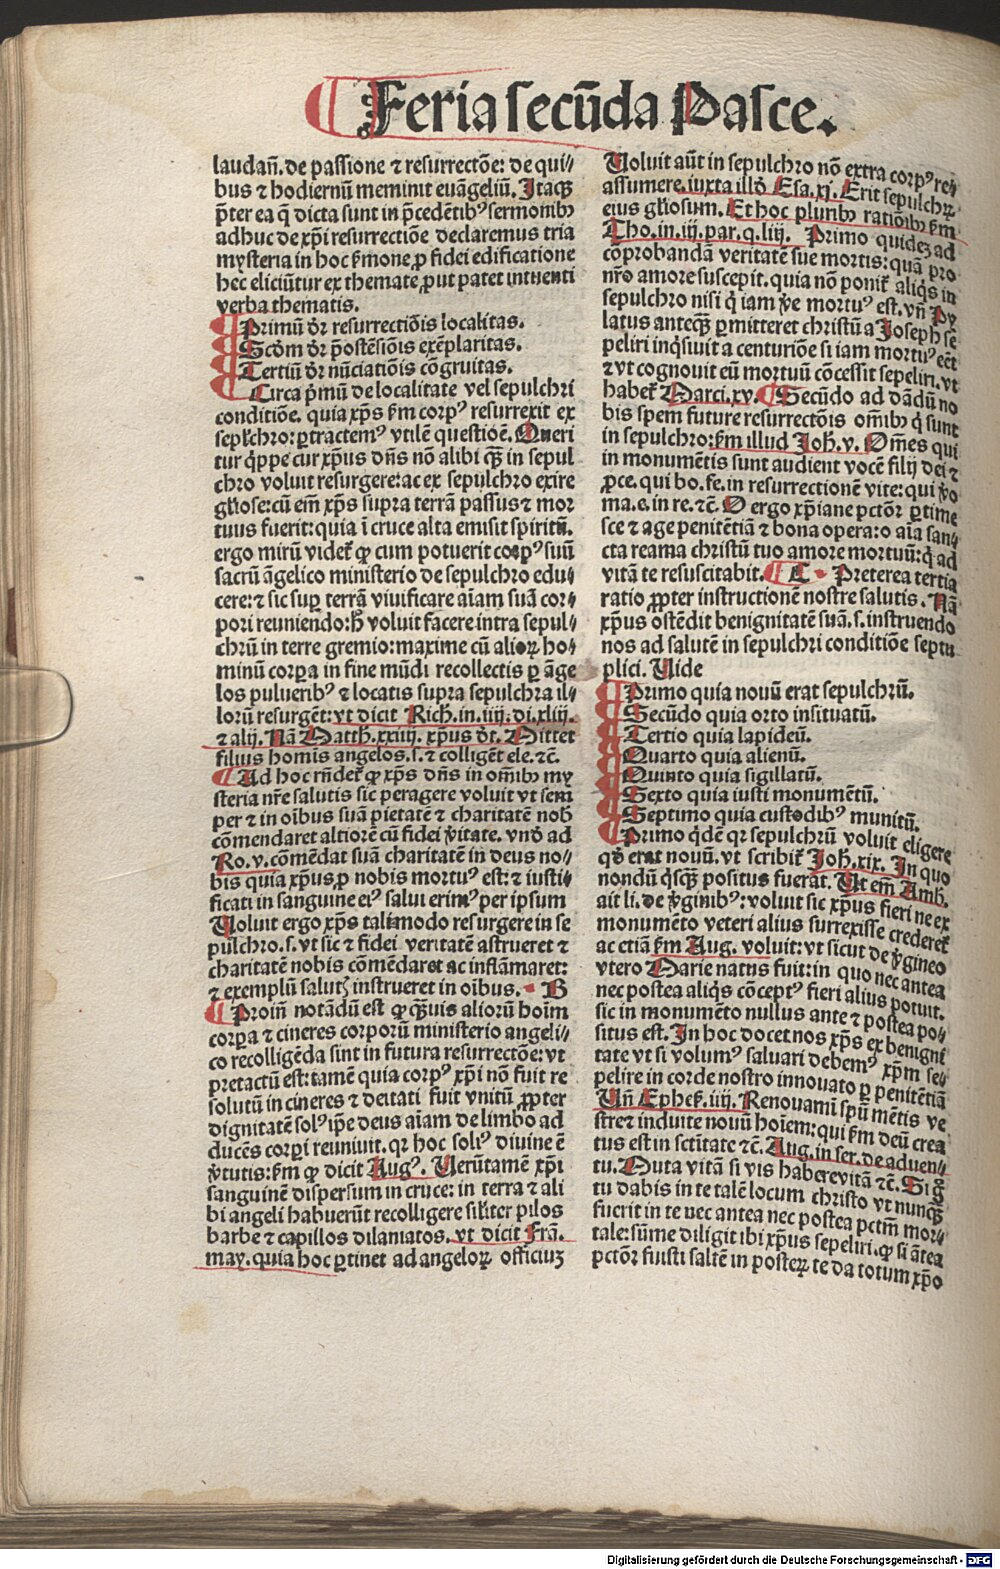 ¶ Feria secūda Pasce.
laudañ. de passione ⁊ resurrectōe: de qui⸗
bus ⁊ hodiernū meminit euāgeliū. Itaqꝫ
p̄ter ea q̄ dicta sunt in p̄cedētibꝰ sermonibꝫ
adhuc de xp̄i resurrectiōe declaremus tria
mysteria in hoc s̄mone ꝓ fidei edificatione
hec eliciūtur ex themate ꝓut patet intuenti
verba thematis.
¶ Primū dr̄ resurrectiōis localitas.
¶ Scdm̄ dr̄ p̄ostēsiōis exēplaritas.
¶ Tertiū dr̄ nūciatiōis cōgruitas.
¶ Circa p̄mū de localitate vel sepulchri
conditiōe. quia xp̄s s̄m corpꝰ resurrexit ex
sepl̄chro: ꝑtractemꝰ vtilē questioē. Queri
tur q̄ppe cur xp̄us dn̄s nō alibi qꝫ̄ in sepul
chro voluit resurgere: ac ex sepulchro exire
gl̄iose: cū em̄ xp̄s supra terrā passus ⁊ mor
tuus fuerit: quia ī cruce alta emisit spiritū.
ergo mirū videt̄ ꝙ cum potuerit corpꝰ suū
sacrū āgelico ministerio de sepulchro edu⸗
cere: ⁊ sic suꝑ terrā viuificare aīam suā cor⸗
pori reuniendo: hᷤ voluit facere intra sepul⸗
chrū in terre gremio: maxime cū alioꝝ ho⸗
minū corꝑa in fine mūdi recollectis ꝑ āge
los pulueribꝰ ⁊ locatis supra sepulchra il⸗
lorū resurgēt: vt dicit Rich. in. iiij. di. xliij.
⁊ alij. Nā Matth. xxiiij. xp̄us dr̄. Mittet
filius homīs angelos. s. ⁊ colligēt ele. ⁊c̄.
¶ Ad hoc rn̄det̄ ꝙ xp̄s dn̄s in om̄ibꝫ my
steria nr̄e salutis sic peragere voluit vt sem
per ⁊ in oībus suā pietatē ⁊ charitatē nob̄
cōmendaret altiorē cū fidei v̄itate. vnō ad
Ro. v. cōmēdat suā charitatē in deus no⸗
bis quia xp̄us ꝓ nobis mortuꝰ est: ⁊ iusti⸗
ficati in sanguine eiꝰ salui erimꝰ per ipsum
Uoluit ergo xp̄s tali modo resurgere in se
pulchro. s. vt sic ⁊ fidei veritatē astrueret ⁊
charitatē nobis cōmēdaret ac inflāmaret:
⁊ exemplū salutꝭ instrueret in oībus. B
¶ Proin̄ notādū est ꝙ qꝫ̄uis aliorū hoīm
corꝑa ⁊ cineres corporū ministerio angeli⸗
co recolligēda sint in futura resurrectōe: vt
pretactū est: tamē quia corpꝰ xp̄i nō fuit re
solutū in cineres ⁊ deitati fuit vnitū ꝓpter
dignitatē solꝰ ip̄e deus aīam de limbo ad
ducēs corꝑi reuniuit. qr̄ hoc soliꝰ diuine ē
v̄tutis: s̄m ꝙ dicit Augꝰ. Uerūtamē xp̄i
sanguinē dispersum in cruce: in terra ⁊ ali
bi angeli habuerūt recolligere sil̄iter pilos
barbe ⁊ capillos dilaniatos. vt dicit Frā.
may. quia hoc ꝑtinet ad angeloꝝ officiuꝫ
Uoluit aūt in sepulchro nō extra corpꝰ re⸗
assumere. iuxta illō Esa. xj. Erit sepulchꝝ
eius gl̄iosum. Et hoc pluribꝫ ratiōibꝫ s̄m
Tho. in. iij. par. q. liij. Primo quideꝫ ad
cōprobandā veritatē sue mortis: quā pro
nr̄o amore suscepit. quia nō ponit̄ aliq̄s in
sepulchro nisi q̄ iam v̄e mortuꝰ est. vn̄ Py
latus anteqꝫ̄ ꝑmitteret christū a Joseph se
peliri inq̄siuit a centuriōe si iam mortuꝰ eēt
⁊ vt cognouit eū mortuū cōcessit sepeliri. vt
habet̄ Marci. xv. ¶ Secūdo ad dādū no
bis spem future resurrectōis om̄ibꝫ q̄ sunt
in sepulchro: s̄m illud Joh̄. v. Om̄es qui
in monumētis sunt audient vocē filij dei ⁊
ꝓce. qui bo. fe. in resurrectionē vite: qui v̄o
ma. e. in re. ⁊c̄. O ergo xp̄iane pctōr ꝑtime
sce ⁊ age penitētiā ⁊ bona opera: o aīa san⸗
cta reama christū tuo amore mortuū: q̄ ad
vitā te resuscitabit. ¶ C Preterea tertia
ratio ꝓpter instructionē nostre salutis. Nā
xp̄us ostēdit benignitatē suā. s. instruendo
nos ad salutē in sepulchri conditiōe septu
plici. Uide
¶ Primo quia nouū erat sepulchrū.
¶ Secūdo quia orto insituatū.
¶ Tertio quia lapideū.
¶ Quarto quia alienū.
¶ Quinto quia sigillatū.
¶ Sexto quia iusti monumētū.
¶ Septimo quia custodibꝰ munitū.
¶ Primo q̄dē qr̄ sepulchrū voluit eligere
qd̄ erat nouū. vt scribit̄ Joh̄. xix. In quo
nondū q̄sqꝫ̄ positus fuerat. Ut em̄ Amb.
ait li. de v̄ginibꝰ: voluit sic xp̄us fieri ne ex
monumēto veteri alius surrexisse crederet̄
ac etiā s̄m Aug. voluit: vt sicut de v̄gineo
vtero Marie natus fuit: in quo nec antea
nec postea aliq̄s cōceptꝰ fieri alius potuit.
sic in monumēto nullus ante ⁊ postea po⸗
situs est. In hoc docet nos xp̄s ex benigni
tate vt si volumꝰ saluari debemꝰ xp̄m se⸗
pelire in corde nostro innouato ꝑ penitētiā
Un̄ Ephes̄. iiij. Renouamī spū mētis ve
stre ⁊ induite nouū hoīem: qui s̄m deū crea
tus est in sctītate ⁊c̄. Aug. in ser. de aduen⸗
tu. Muta vitā si vis habere vitā ⁊c̄. Si ḡ
tu dabis in te talē locum christo vt nunqꝫ̄
fuerit in te nec antea nec postea pctm̄ mor⸗
tale: sūme diligit ibi xp̄us sepeliri. ꝙ si ātea
pctōr fuisti saltē in posteꝝ te da totum xp̄o
Digitalisierung gefördert durch die Deutsche Forschungsgemeinschaft - DFG